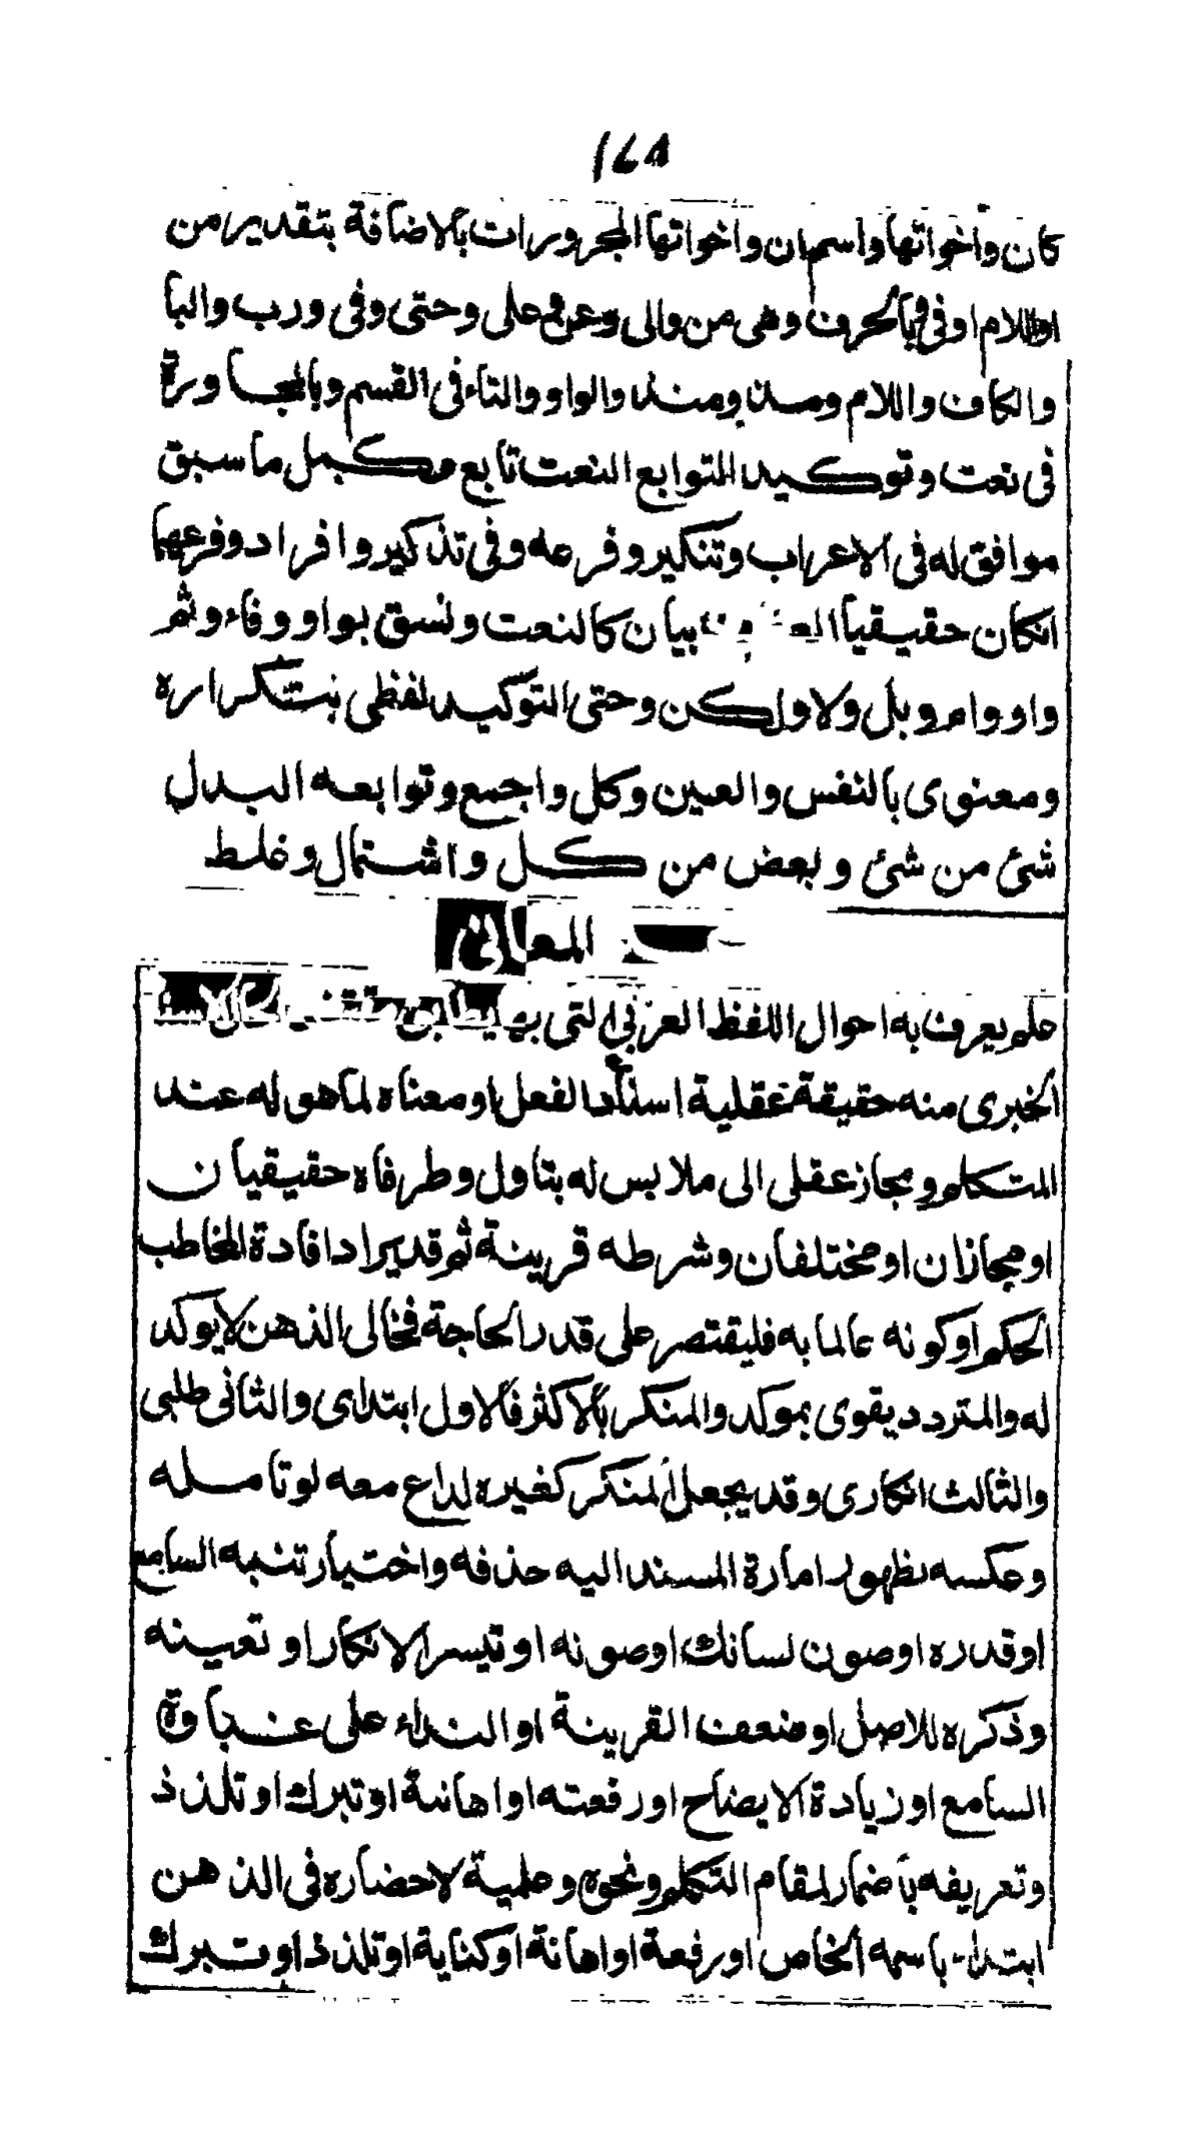 ١٦٨
كان واخواتها واسم ان واخواتها المجرورات بالاضافة بتقدير من
او اللام او في وبالحرف وهى من والى وعن وعلى وحتى وفى ورب والبا
والكاف واللام ومذ ومنذ والواو والتاء فى القسم وبالمجاورة
فى نعت وتوكيد التوابع النعت تابع مكمل ما سبق
موافق له فى الاعراب وتنكير وفرعه وفى تذكير وافراد وفرعهما
انكان حقيقيا بيان كالنعت ونسق بواو وفاء وثم
واو وام وبل ولا ولكن وحتى التوكيد لفظى بتكراره
ومعنوى بالنفس والعين وكل واجمع وتوابعه البدل
شئ من شئ وبعض من كل واشتمال وغلط
المعانى
علم يعرف به احوال اللفظ العربى التى بها يطابق مقتضى
الخبرى منه حقيقة عقلية اسناد الفعل او معناه لما هو له عند
المتكلم ومجاز عقلى الى ملابس له بتاول وطرفاه حقيقيان
او مجازان او مختلفان وشرطه قرينة ثم قد يراد افادة المخاطب
الحكم او كونه عالما به فليقتصر على قدر الحاجة فخالى الذهن لا يوكد
له والمتردد يقوى بموكد والمنكر بالاكثر فالاول ابتداى والثانى طلبى
والثالث انكارى وقد يجعل المنكر كغيره لداع معه لو تامله
وعكسه لظهور امارة المسند اليه حذفه واختيار تنبه السامع
او قدره او صون لسانك او صونه او تيسر الانكار او تعينه
وذكره للاصل او ضعف القرينة او النداء على غباوة
السامع او زيادة الايضاح او رفعته او اهانة او تبرك او تلذذ
وتعريفه باضمار لمقام التكلم ونحوه وعلمية لاحضاره فى الذهن
ابتداء باسمه الخاص او رفعة او اهانة او كناية او تلذذ او تبرك